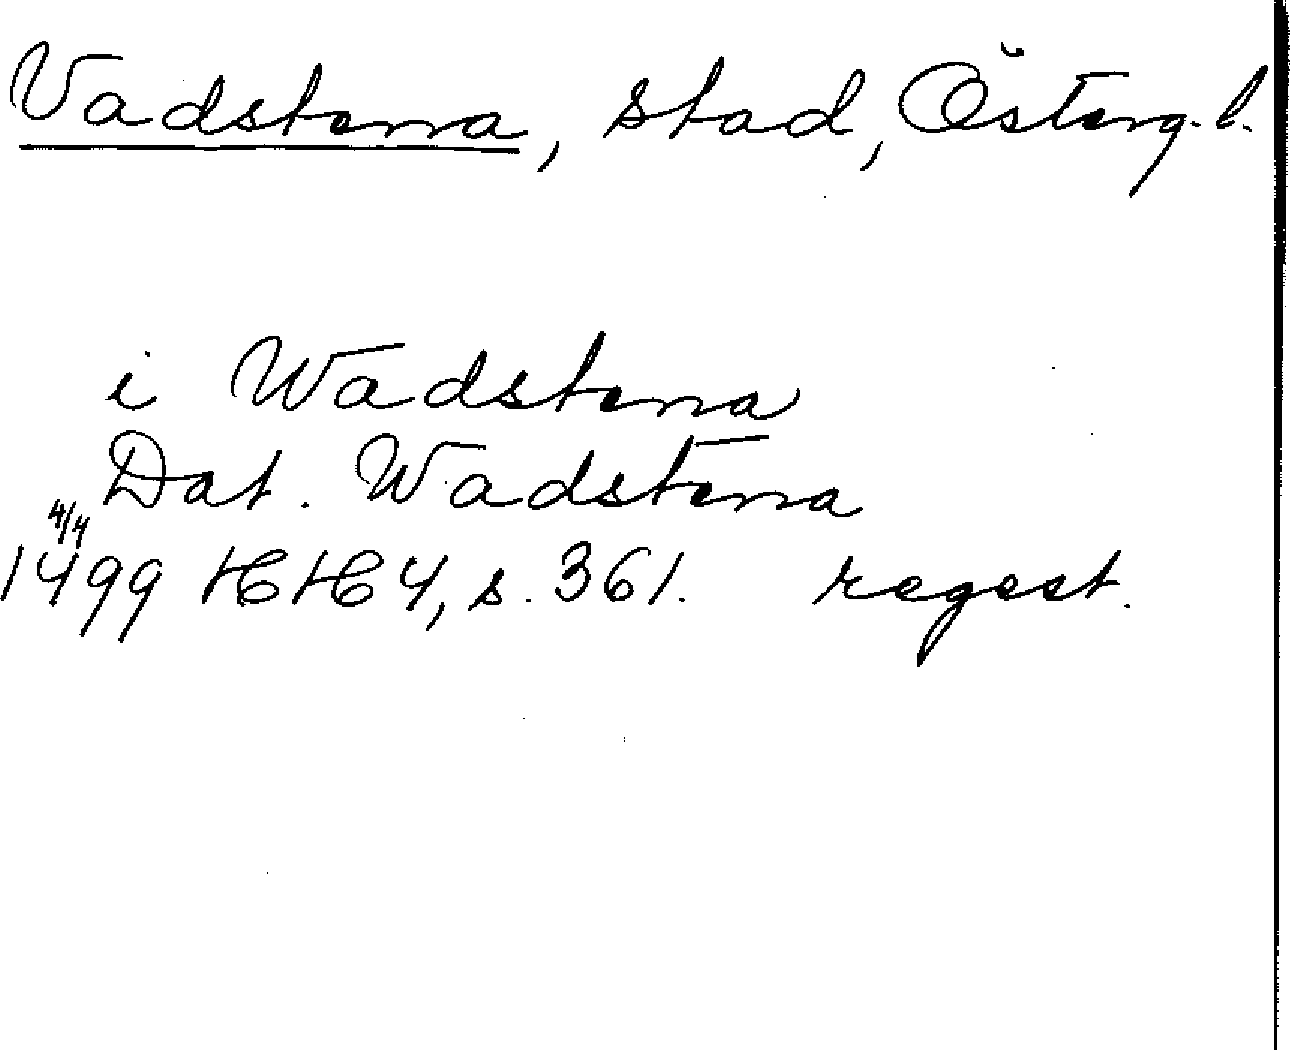 Vadstena, stad, Österg. l.
i Wadstena
Dat. Wadstena
4/4
1499 HH 4, s. 361. regest.